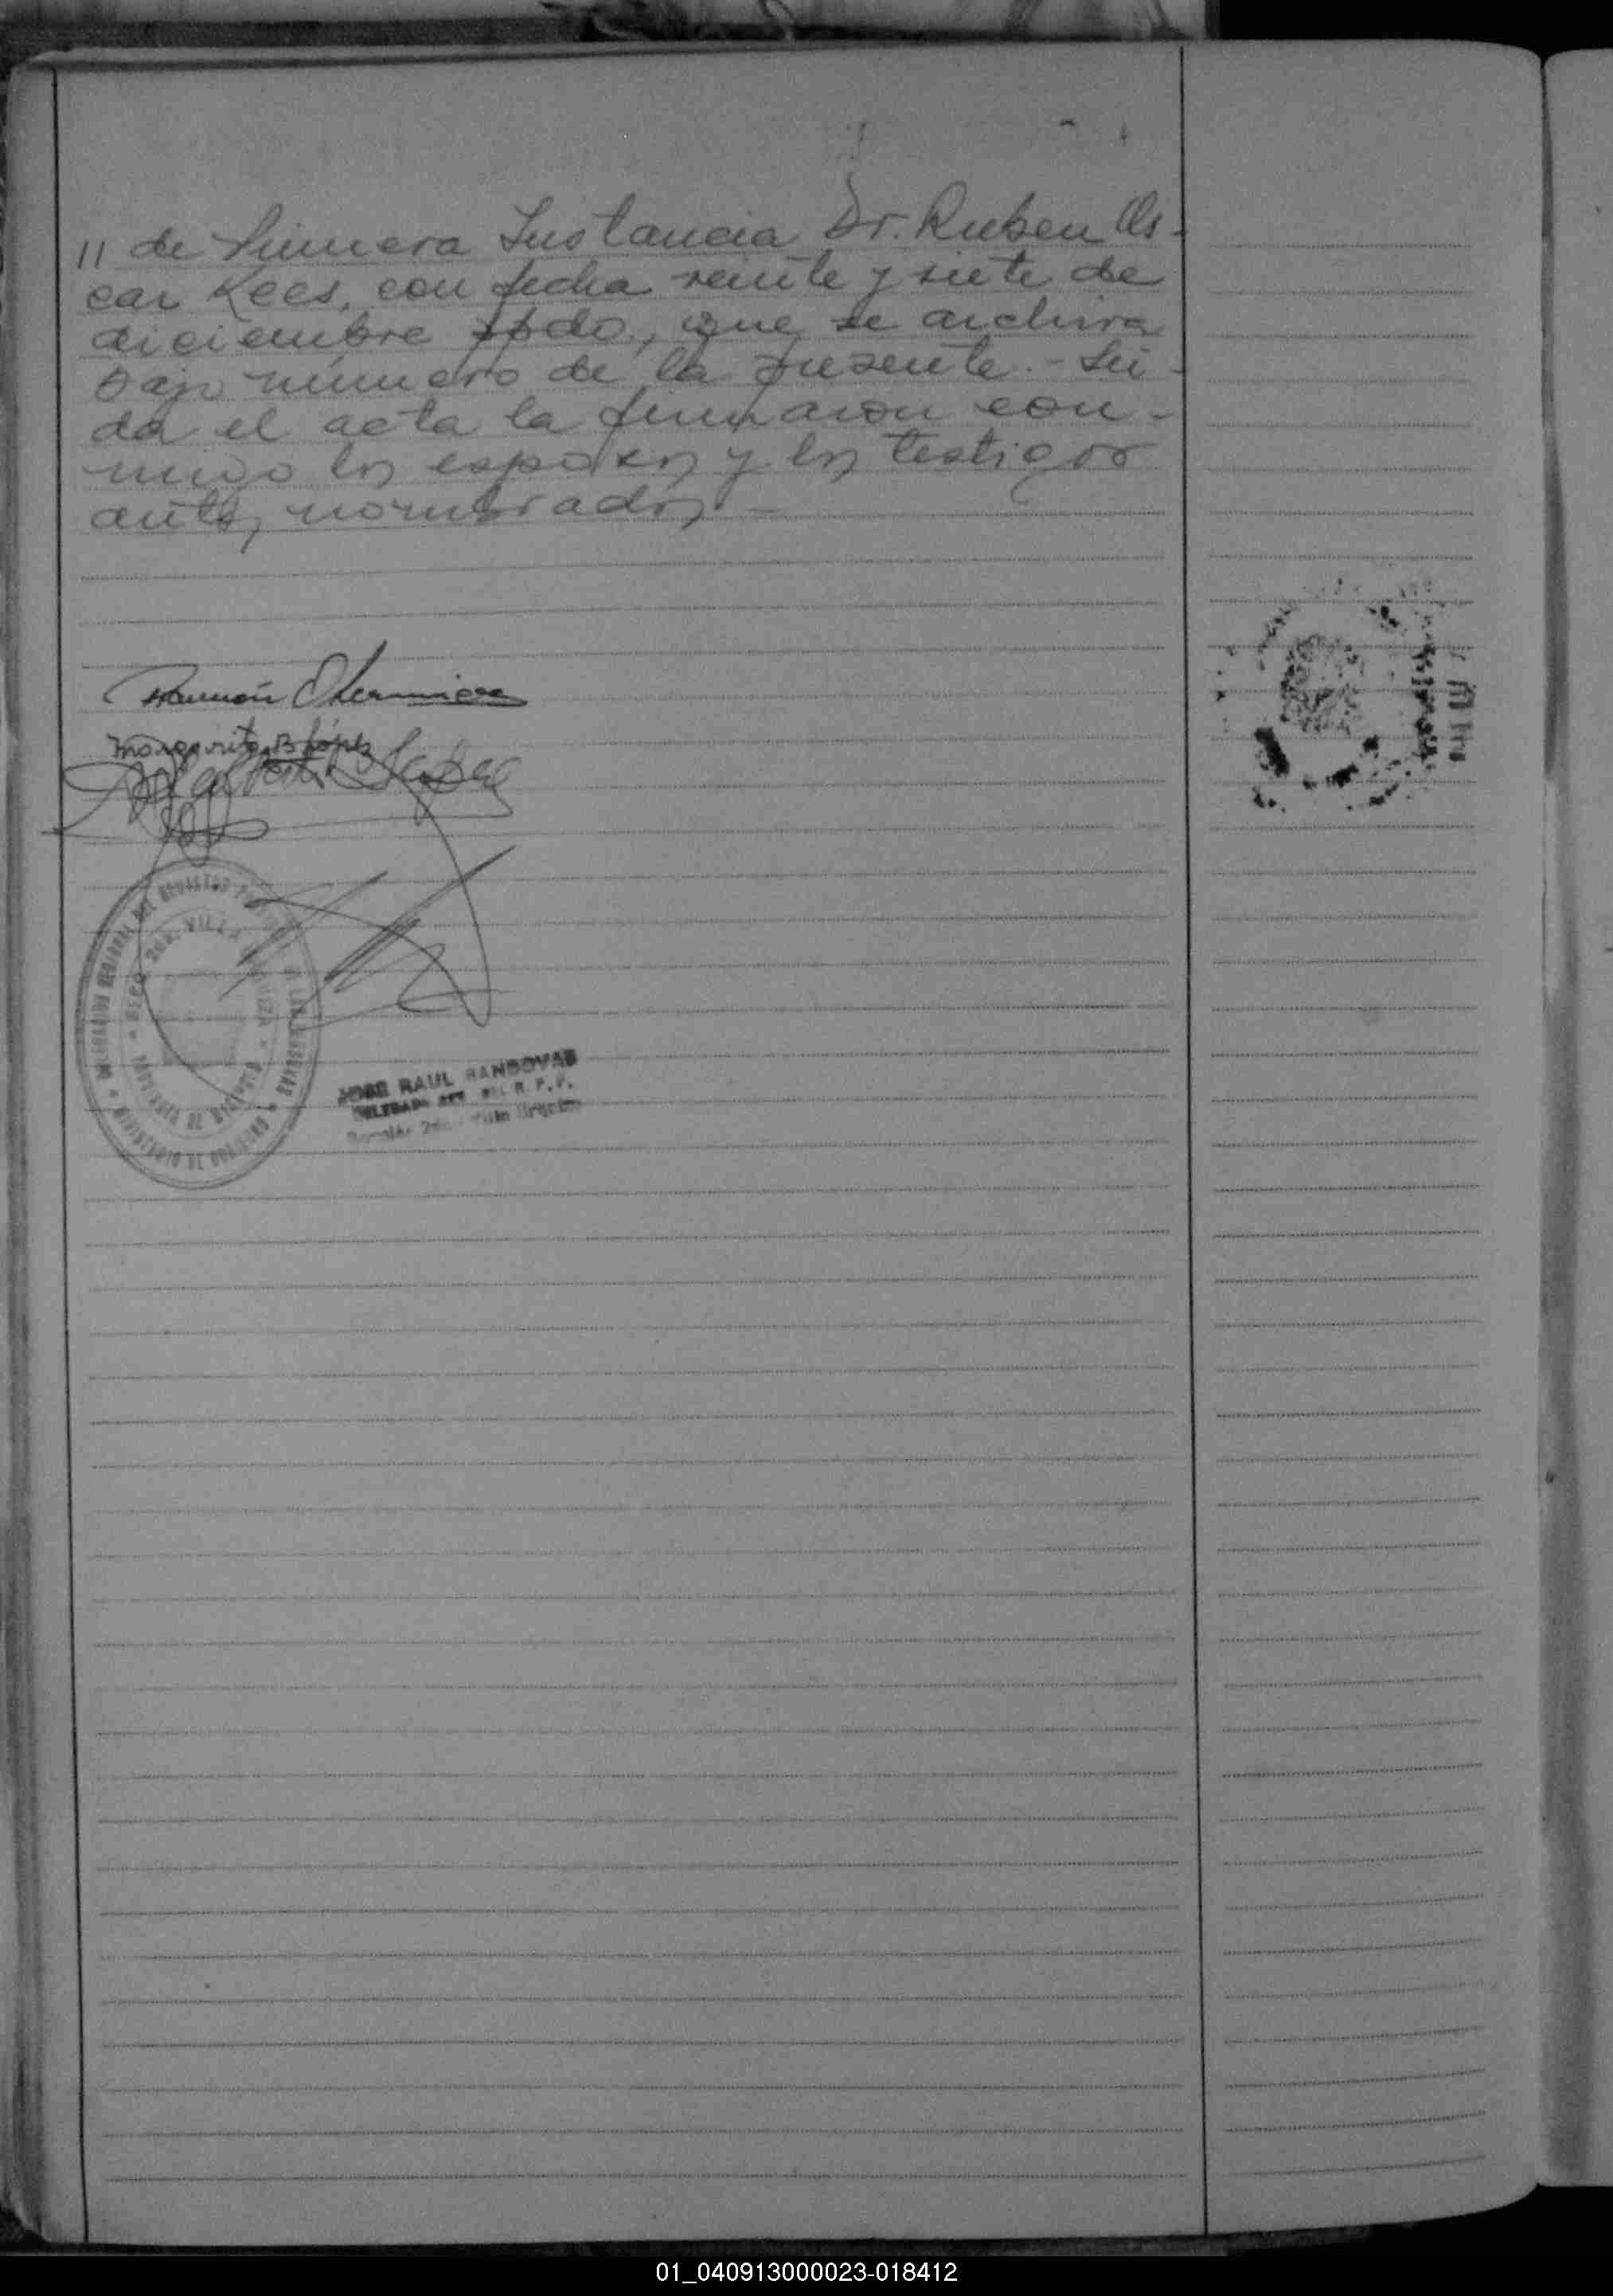 // de Primera Instancia Dr. Ruben Os-
car Kees, con fecha veinte y siete de
diciembre ppdo., que se archiva
bajo número de la presente.- Leí-
da el acta la firmaron con-
migo los esposos y los testigos
antes nombrados.-
Ramón
Margarita B López
VILLA
JOSE RAUL SANDOVAL
DELEGADO R. P. P.
Sección 2da. Villa Urquiza
01_040913000023-018412